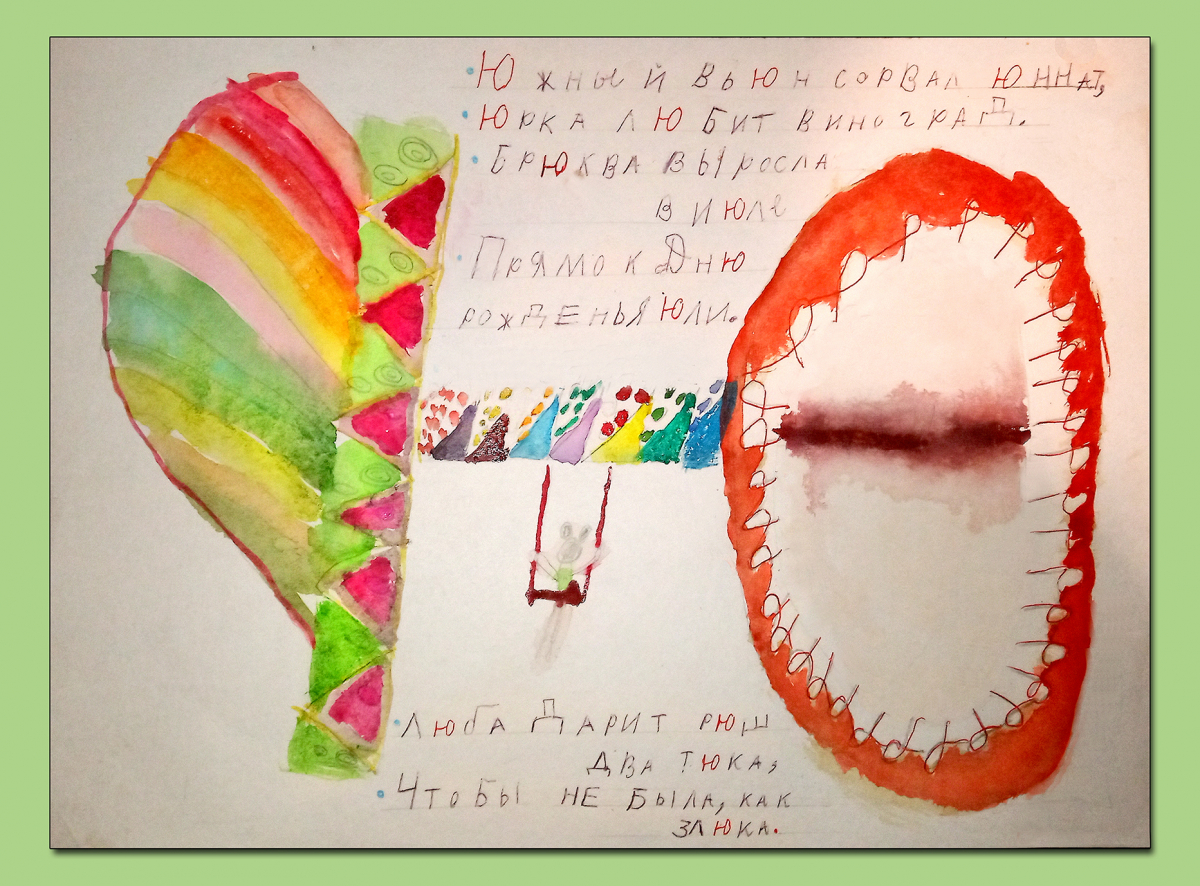 Южный вьюн сорвал юннат,
Юрка любит виноград.
Брюква выросла
в июле
Прямо к Дню
рожденья Юли.
Люба дарит рюш
два тюка,
Чтобы не была, как
злюка.